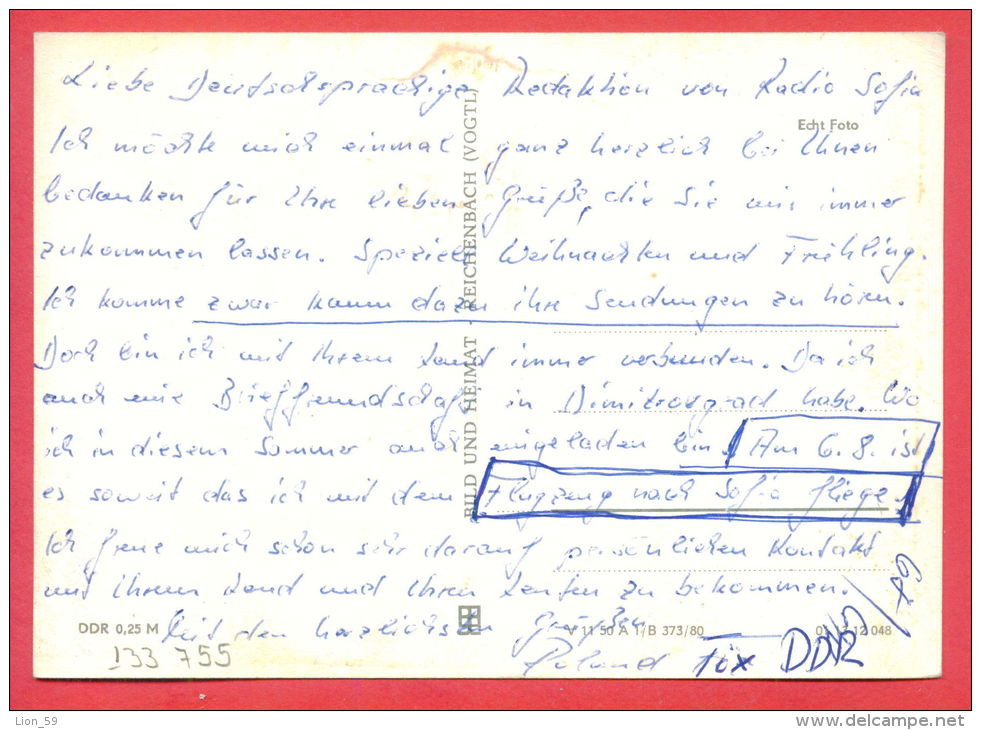 Liebe Deutschsprachige Redaktion von Radio Sofia
Echt Foto
Ich möchte mich einmal ganz herzlich bei Ihnen
bedanken für Ihre lieben Grüße, die Sie mir immer
zukommen lassen. Speziell Weihnachten und Frühling.
Ich komme zwar kaum dazu ihre Sendungen zu hören.
Doch bin ich mit Ihrem Land immer verbunden. Da ich
auch eine Brieffreundschaft in Dimitrovgrad habe. Wo
ich in diesem Sommer auch eingeladen bin. Am 6.8. ist
es soweit das ich mit dem Flugzeug nach Sofia fliege.
Ich freue mich schon sehr darauf persönlichen Kontakt
mit Ihrem Land und Ihren Leuten zu bekommen.
Mit den herzlichsten Grüßen
Roland Fox DDR
BILD UND HEIMAT REICHENBACH (VOGTL)
DDR 0,25 M
V 11 50 A 1/B 373/80
048
133 755
Lion_59
www.delcampe.net